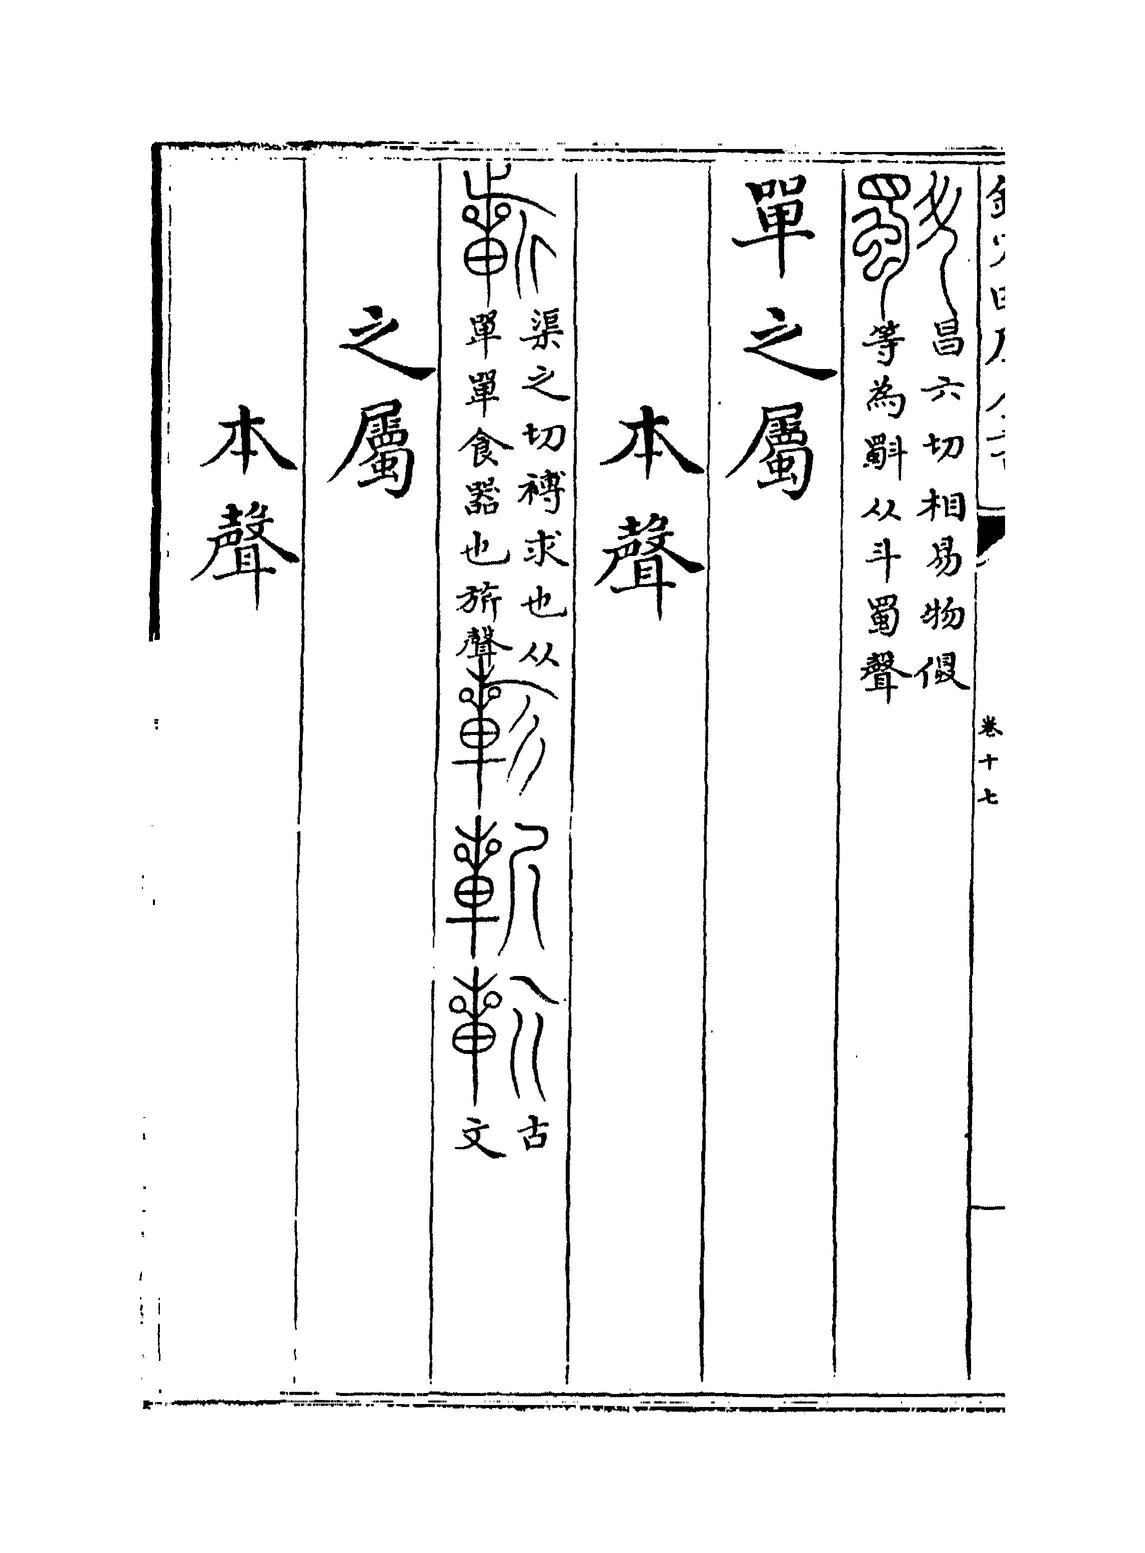 欽定四庫全書
卷十七
斣
昌六切相易物俱
等為斣从斗蜀聲
單之屬
本聲
渠之切禣求也从
單單食器也旂聲
古
文
之屬
本聲